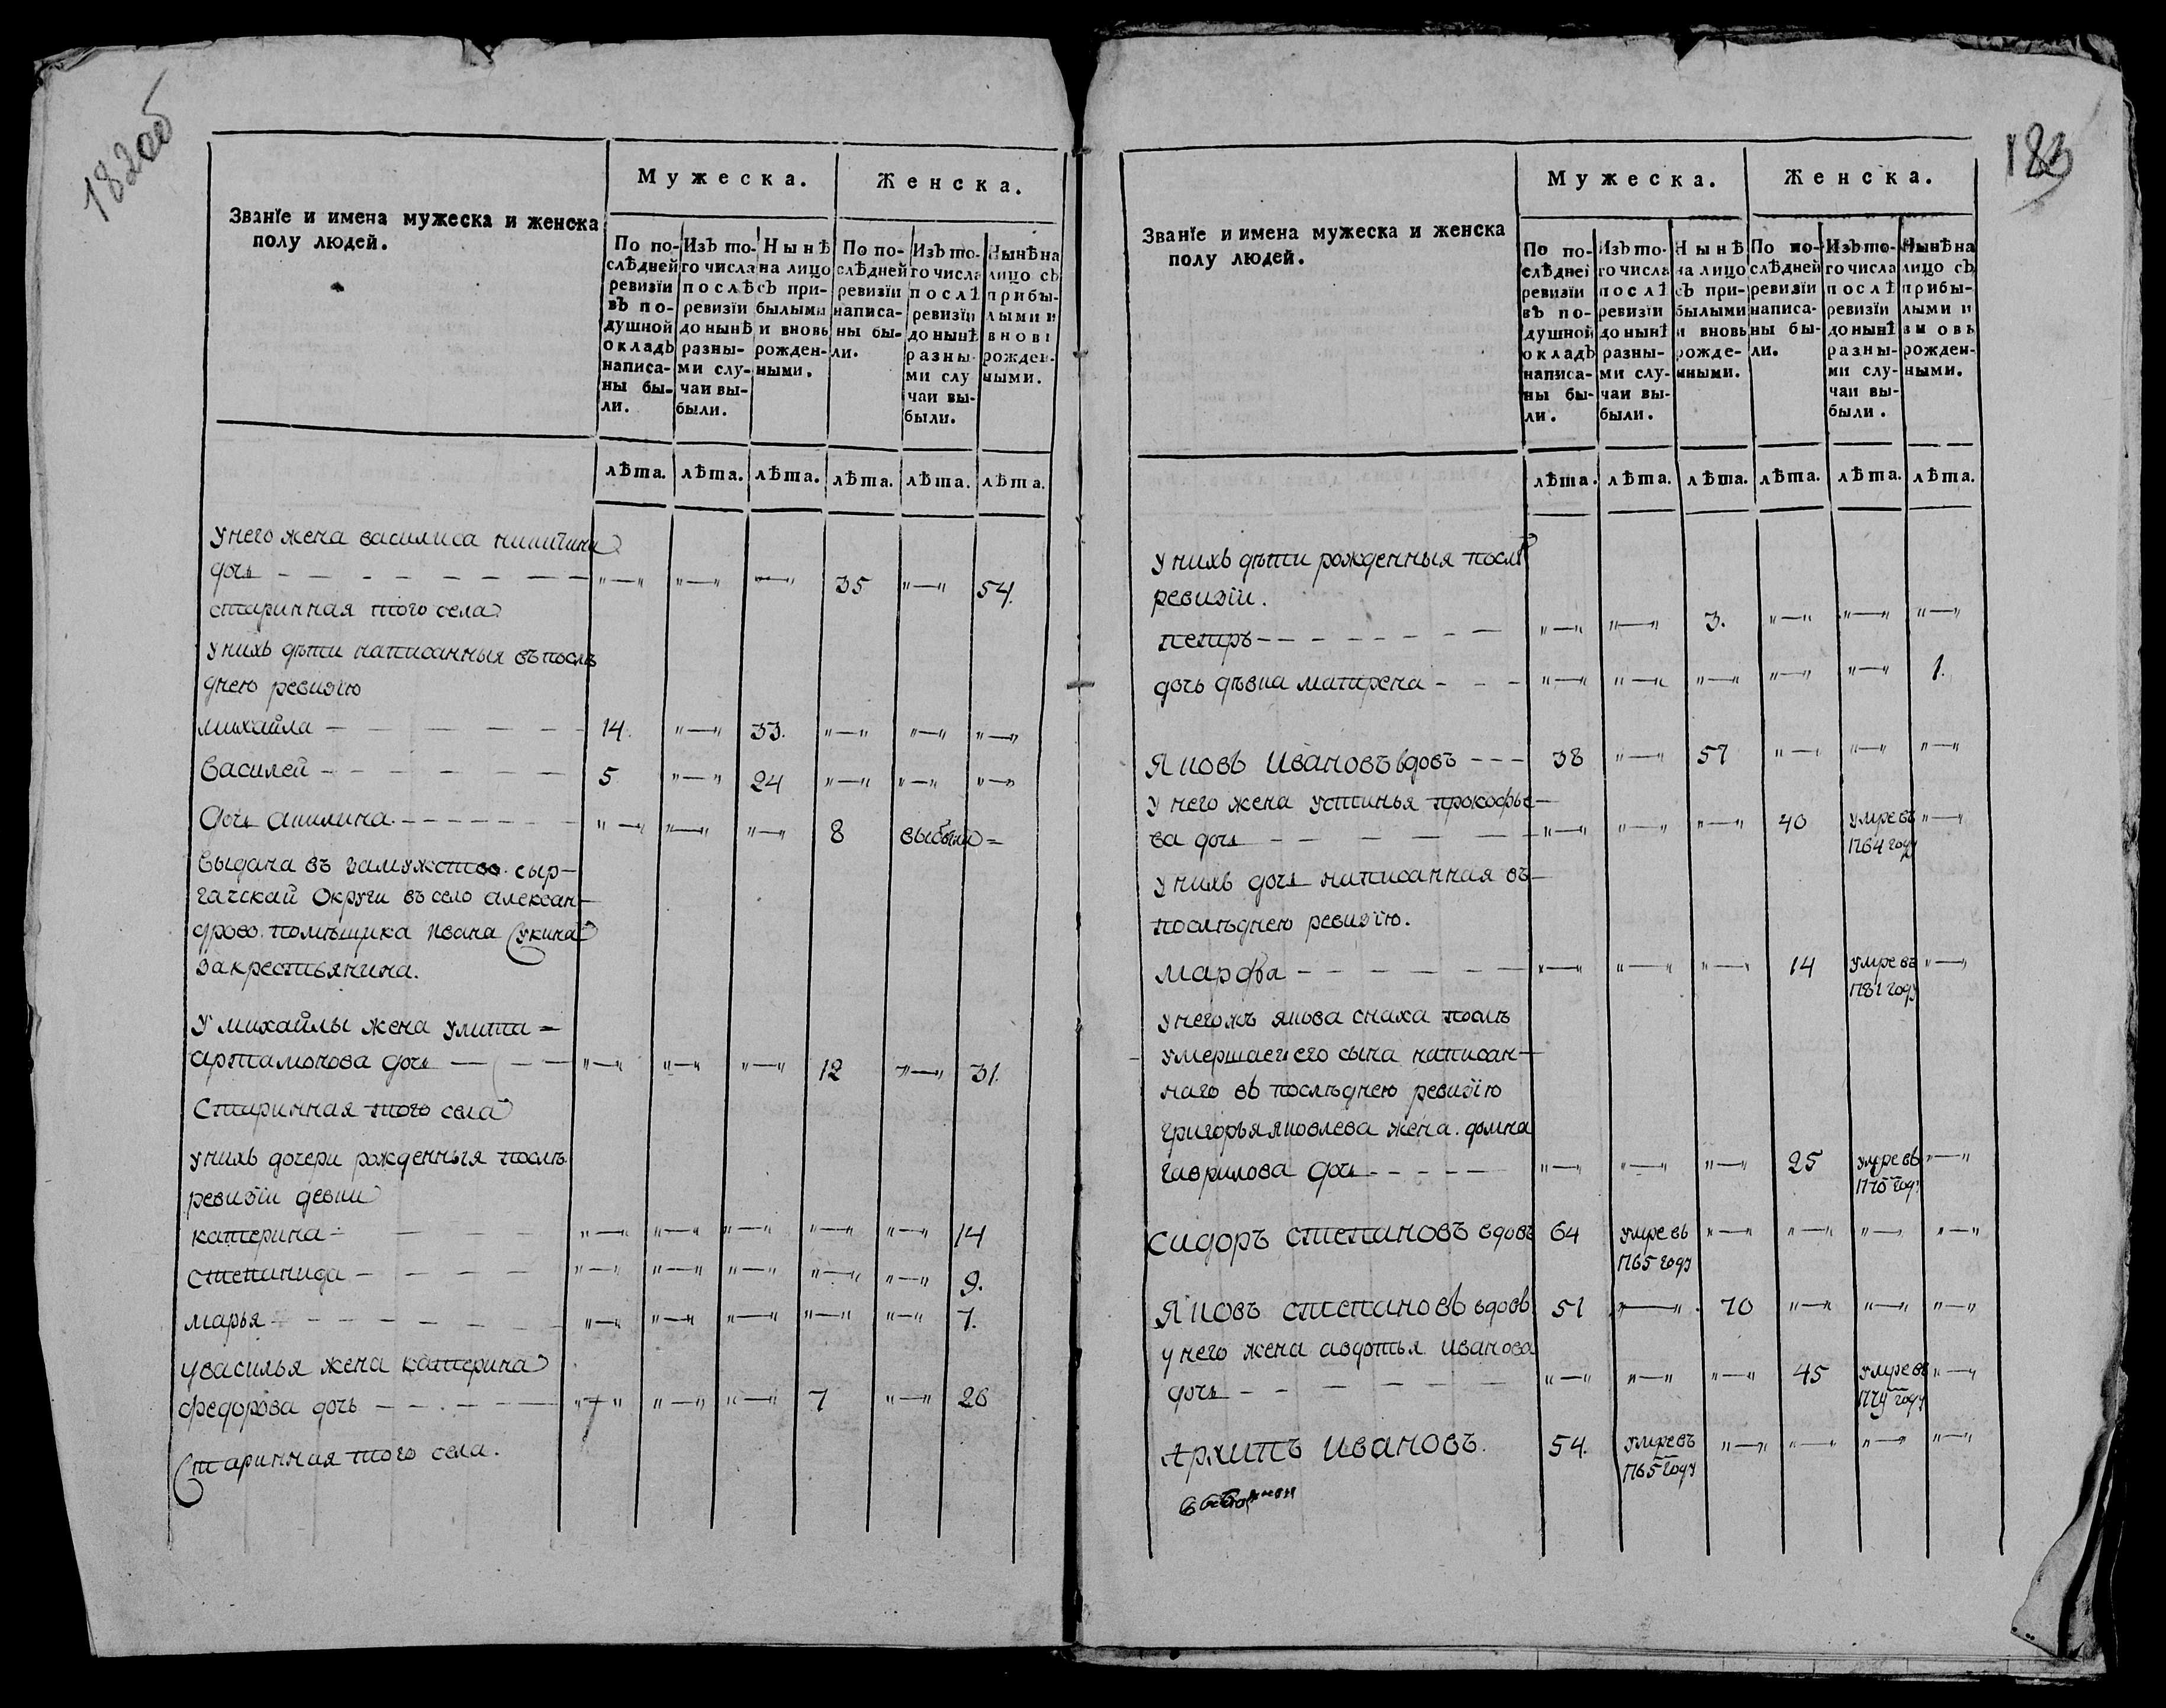 182об
Званїе и имена мужеска и женска
полу людей.
Мужеска.
Женска.
По по-
слѣдней
ревизїи
въ по-
душной
окладъ
написа-
ны бы-
ли.
Изъ то-
го числа
послѣ
ревизїи
до нынѣ
разны-
ми слу-
чаи вы-
были.
Нынѣ
на лицо
съ при-
былыми
и вновь
рожден-
ными.
По по-
слѣдней
ревизїи
написа-
ны бы-
ли.
Изъ то-
го числа
послѣ
ревизїи
до нынѣ
разны-
ми слу
чаи вы-
были.
Нынѣ на
лицо съ
прибы-
лыми и
вновь
рожден-
ными.
лѣта. лѣта. лѣта. лѣта. лѣта. лѣта.
У него жена василиса никитина
дочь 35 54.
старинная того села
У нихъ дѣти написанныя въ послѣ
днею ревизїю
михайла 14. 33.
Василей 5 24
Дочь акилина 8 выбыла
Выдана въ замужство сыр-
гачской Округи въ село алексан-
дрово помѣщика Ивана Сукина
за крестьянина.
У михайлы жена улита
артамонова дочь 12 31.
Старинная того села
у нихъ дочери рожденныя послѣ
ревизїи девки
катерина 14
степанида 9.
марья 7.
у василья жена катерина
федорова дочь 7 26
Старинная того села.
183
Званїе и имена мужеска и женска
полу людей.
Мужеска.
Женска.
По по-
слѣдней
ревизїи
въ по-
душной
окладъ
написа-
ны бы-
ли.
Изъ то-
го числа
послѣ
ревизїи
до нынѣ
разны-
ми слу-
чаи вы-
были.
Нынѣ
на лицо
съ при-
былыми
и вновь
рожде-
нными.
По по-
слѣдней
ревизїи
написа-
ны бы-
ли.
Изъ то-
го числа
послѣ
ревизїи
до нынѣ
разны-
ми слу-
чаи вы-
были.
Нынѣ на
лицо съ
прибы-
лыми и
вновь
рожден-
ными.
лѣта. лѣта. лѣта. лѣта. лѣта. лѣта.
У нихъ дѣти рожденныя послѣ
ревизїи.
петръ 3.
дочь дѣвка матрена 1.
Яковъ Ивановъ вдовъ 38 57
У него жена устинья прокофье-
ва дочь 40 умре въ
1764 году
У нихъ дочь написанная въ
послѣднею ревизїю.
марфа 14 умре въ
1781 году
у негожъ якова снаха послѣ
умершаго его сына написан-
наго въ послѣднею ревизїю
григорья яковлева жена домна
гаврилова дочь 25 умре въ
году
Сидоръ степановъ вдовъ 64 умре въ
1765 году
Яковъ степановъ вдовъ 51 70
у него жена авдотья иванова
дочь 45 умре въ
году
Архипъ ивановъ. 54. умре въ
1765 году